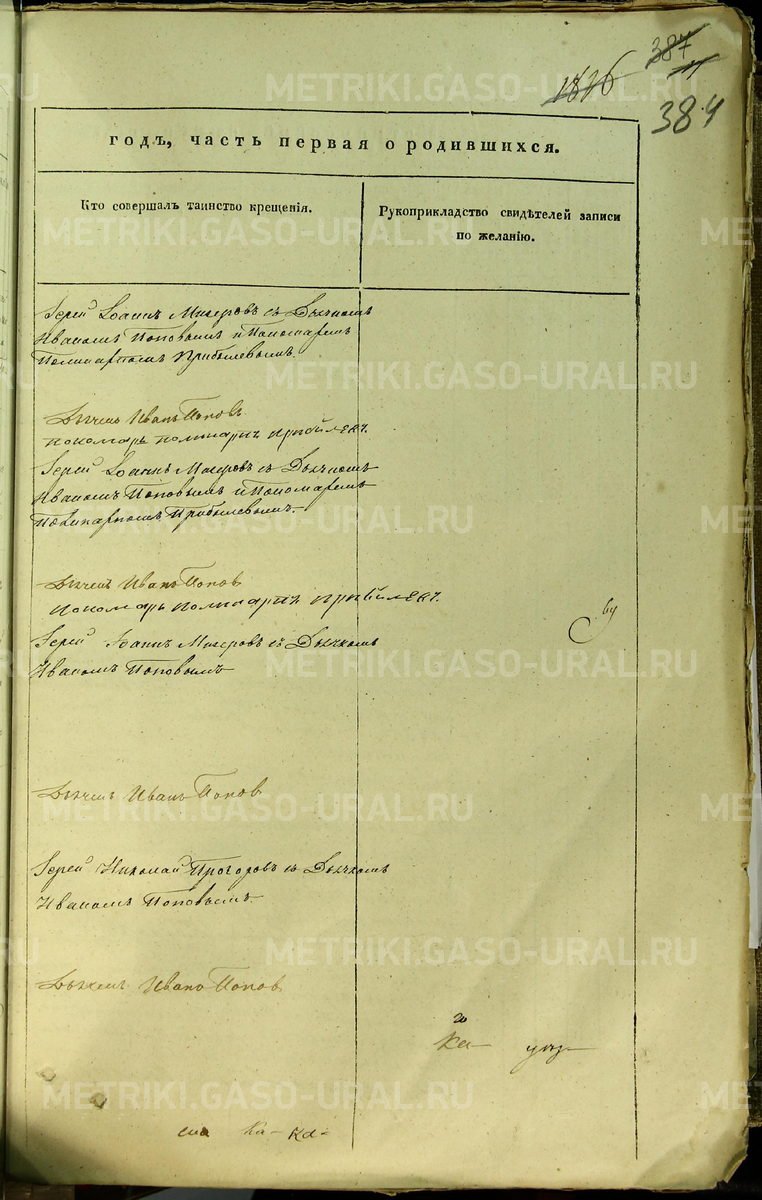 1876
387
384
годъ, часть первая о родившихся.
Кто совершалъ таинство крещенія.
Рукоприкладство свидѣтелей записи
по желанію.
Іерей Іоаннъ съ Дьячкомъ
Иваномъ Поповымъ и Пономаремъ
Поликарпомъ Прибылевымъ.
Дьячекъ Иванъ Поповъ
Пономарь Поликарпъ Прибылевъ.
Іерей Іоаннъ съ Дьячкомъ
Иваномъ Поповымъ и Пономаремъ
Поликарпомъ Прибылевымъ.
Дьячекъ Иванъ Попов
Пономарь Поликарпъ Прибылевъ.
Іерей Іоаннъ съ Дьячкомъ
Иваномъ Поповымъ
Дьячекъ Иванъ Попов
Іерей Николай съ Дьячкомъ
Иваномъ Поповымъ.
Дьячекъ Иванъ Попов
METRIKI.GASO-URAL.RU